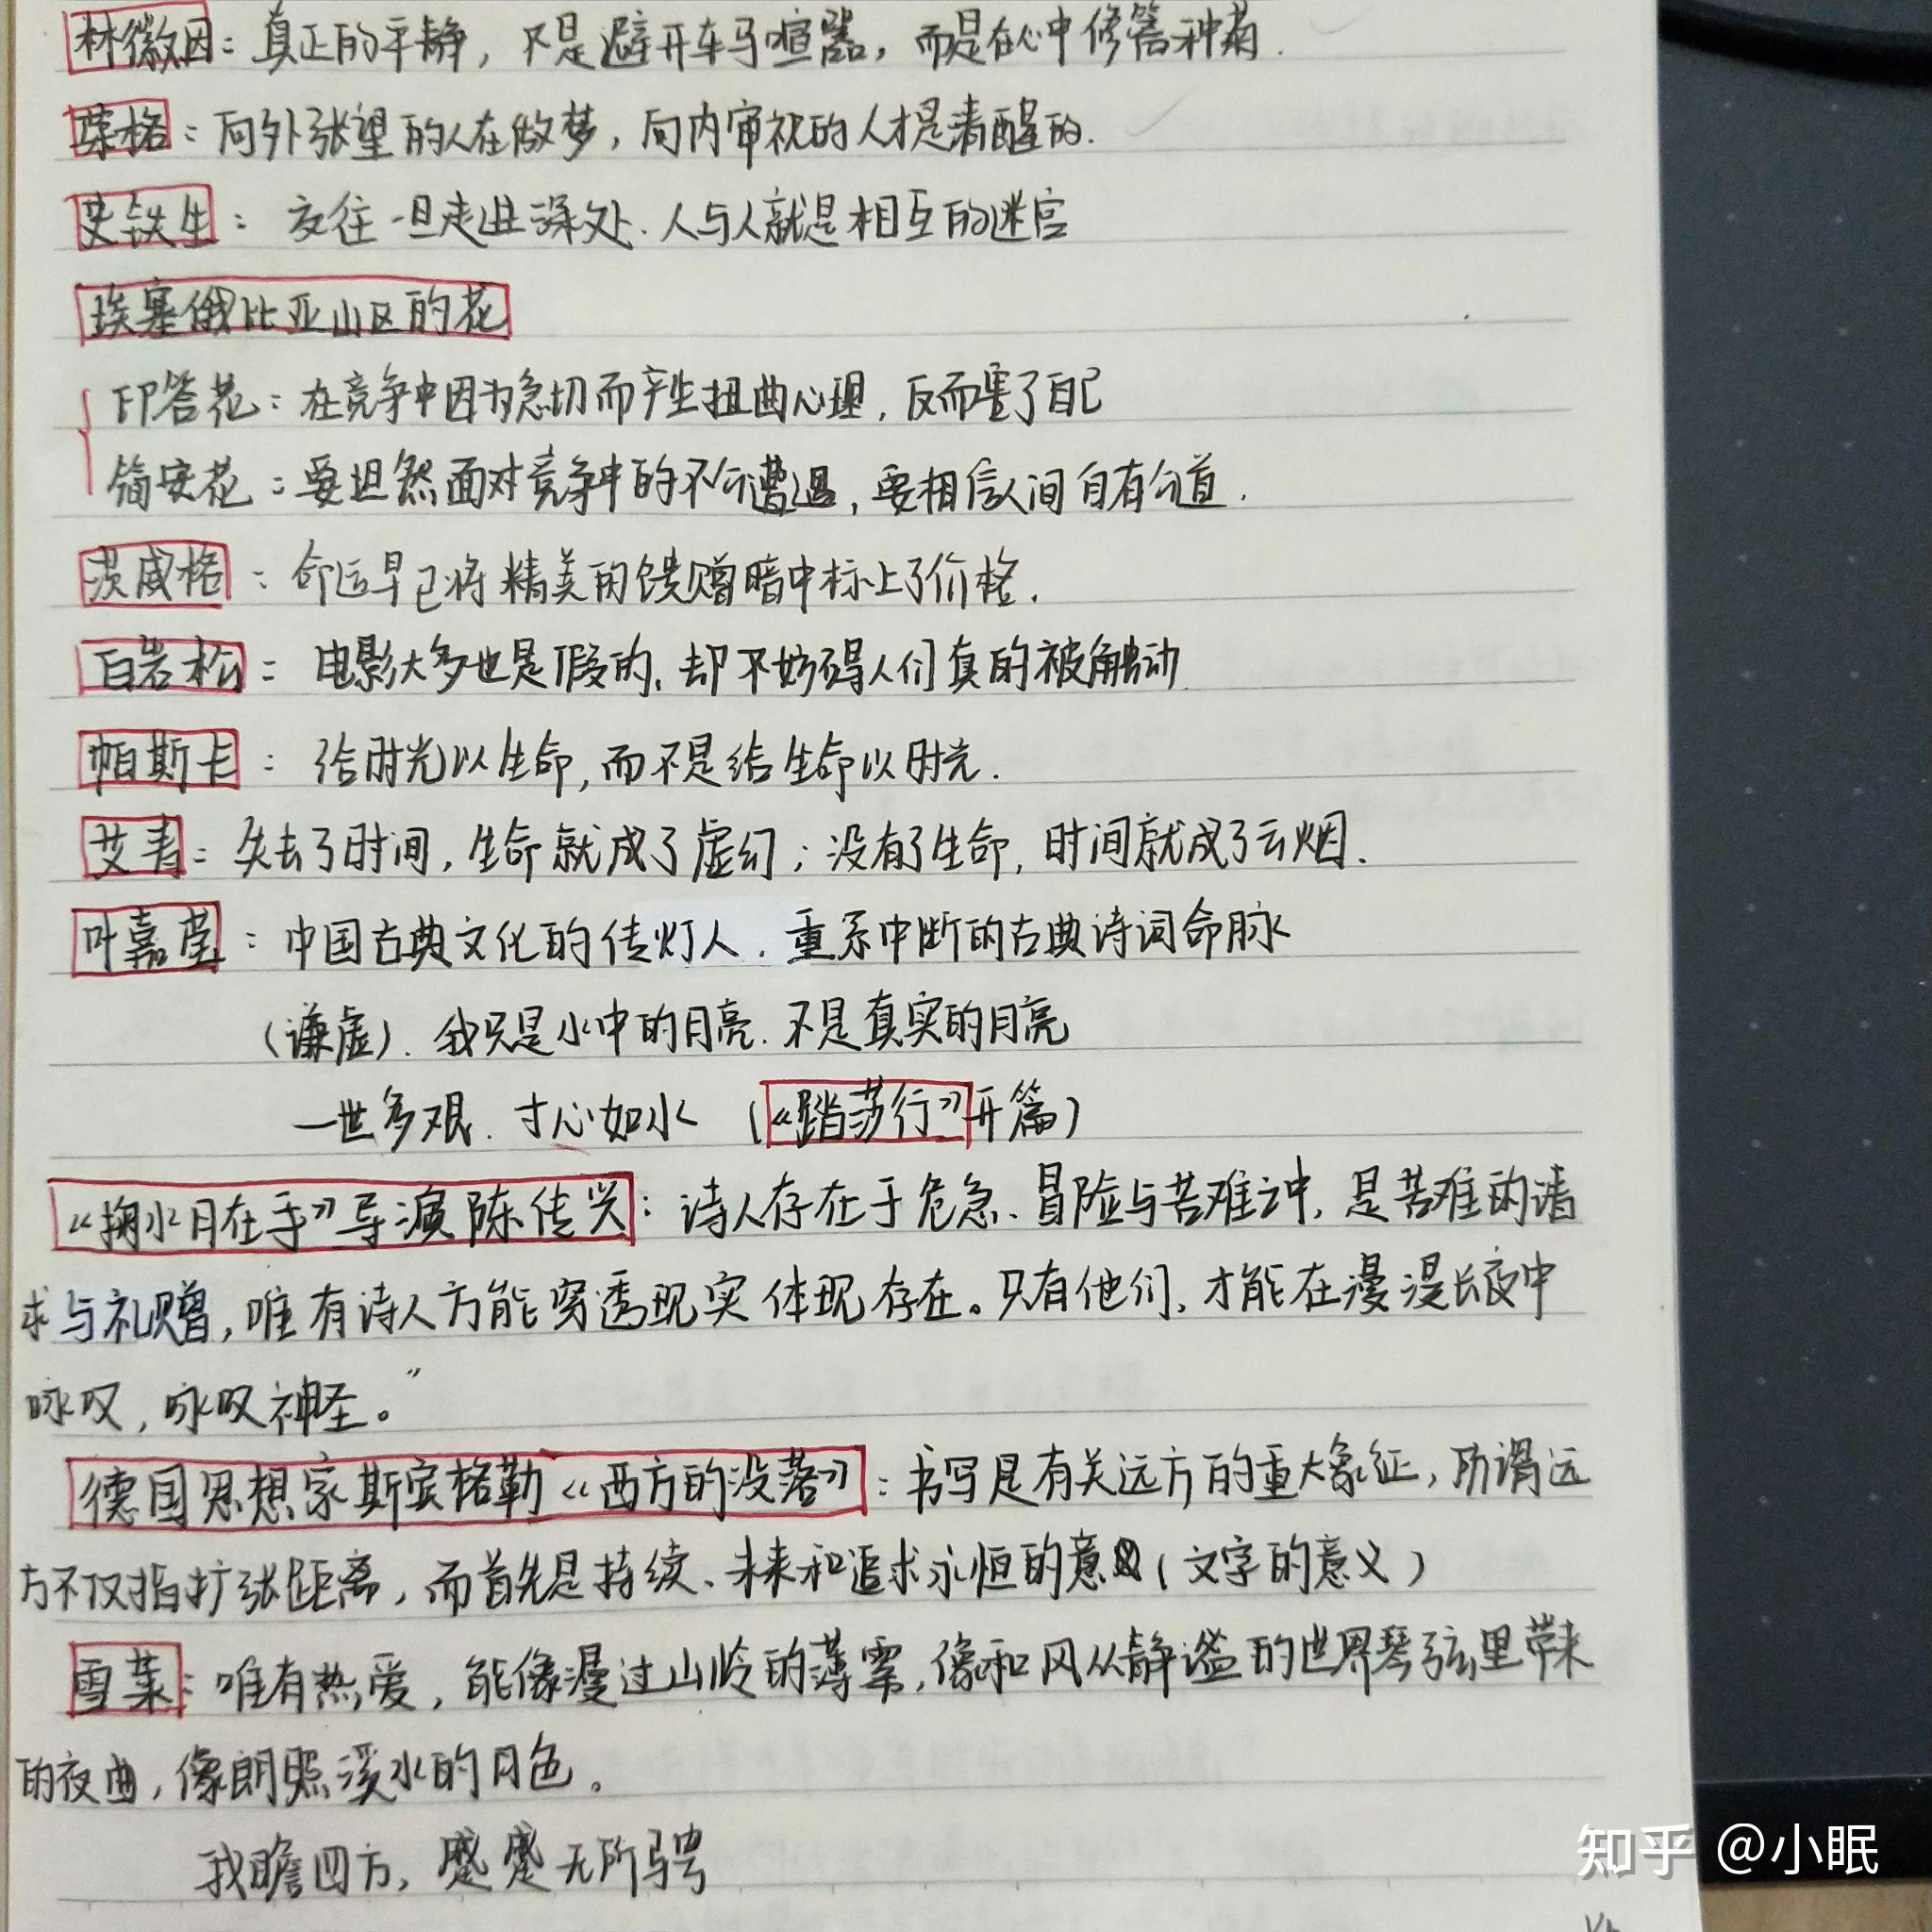 林徽因：真正的平静，不是避开车马喧嚣，而是在心中修篱种菊.
荣格：向外张望的人在做梦，向内审视的人才是清醒的.
史铁生：交往一旦走进深处.人与人就是相互的迷宫
埃塞俄比亚山区的花
印答花：在竞争中因为急切而产生扭曲心理，反而害了自己
简安花：要坦然面对竞争中的不公遭遇，要相信人间自有公道.
茨威格：命运早已将精美的馈赠暗中标上了价格.
白岩松：电影大多也是假的，却不妨碍人们真的被触动
帕斯卡：给时光以生命，而不是给生命以时光.
艾青：失去了时间，生命就成了虚幻；没有了生命，时间就成了云烟.
叶嘉莹：中国古典文化的传灯人.重系中断的古典诗词命脉
（谦虚）.我只是水中的月亮.不是真实的月亮
一世多艰.寸心如水（《踏莎行》开篇）
《掬水月在手》导演陈传兴：诗人存在于危急、冒险与苦难之中，是苦难的请
求与礼赠，唯有诗人方能穿透现实体现存在。只有他们，才能在漫漫长夜中
咏叹，咏叹神圣。”
德国思想家斯宾格勒《西方的没落》：书写是有关远方的重大象征，所谓远
方不仅指扩张距离，而首先是持续、未来和追求永恒的意（文字的意义）
雪莱：唯有热爱，能像漫过山岭的薄雾，像和风从静谧的世界琴弦里带来
的夜曲，像朗照溪水的月色。
我瞻四方，蹙蹙无所骋
知乎 @小眠